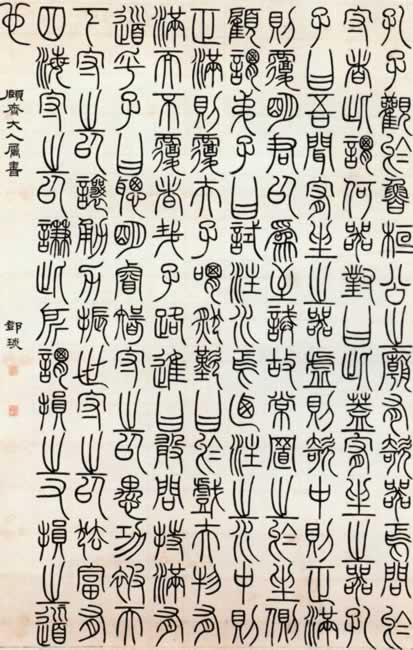 孔子觀於魯桓公之廟有欹器焉問於
守者此謂何器對曰此蓋宥坐之器孔
子曰吾聞宥坐之器虛則欹中則正滿
則覆明君以為至誡故常置之於坐側
顧謂弟子曰試注水焉迺注之水中則
正滿則覆夫子喟然歎曰於戲夫物有
滿而不覆者哉子路進曰敢問持滿有
道乎子曰聰明睿智守之以愚功被天
下守之以讓勇力振世守之以怯富有
四海守之以謙此所謂損之又損之道
也
頤齋大人属書
鄧琰